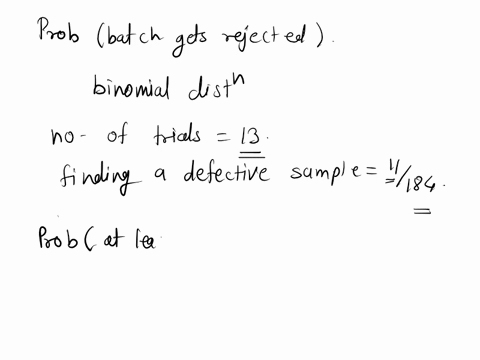 Prob (batch gets rejected).
binomial distⁿ
no- of trials = 13
finding a defective sample = 11/184.
Prob( at lea